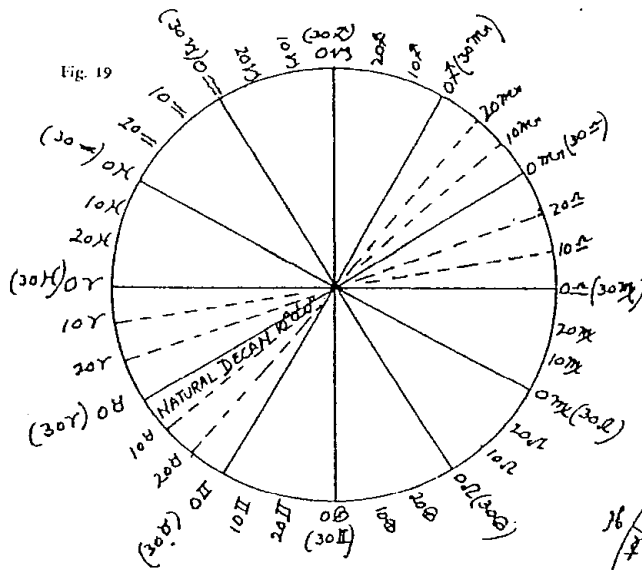 Fig. 19
(30♐)
0♑
20♐
10♐
0♐(30♏)
20♏
10♏
0♏(30♎)
20♎
10♎
0♎(30♍)
20♍
10♍
0♍(30♌)
20♌
10♌
0♌(30♋)
20♋
10♋
0♋
(30♊)
20♊
10♊
0♊
(30♉)
20♉
10♉
(30♈) 0♉
20♈
10♈
(30♓)0♈
20♓
10♓
(30♒)0♓
20♒
10♒
(30♑)0♒
20♑
10♑
NATURAL DECAN